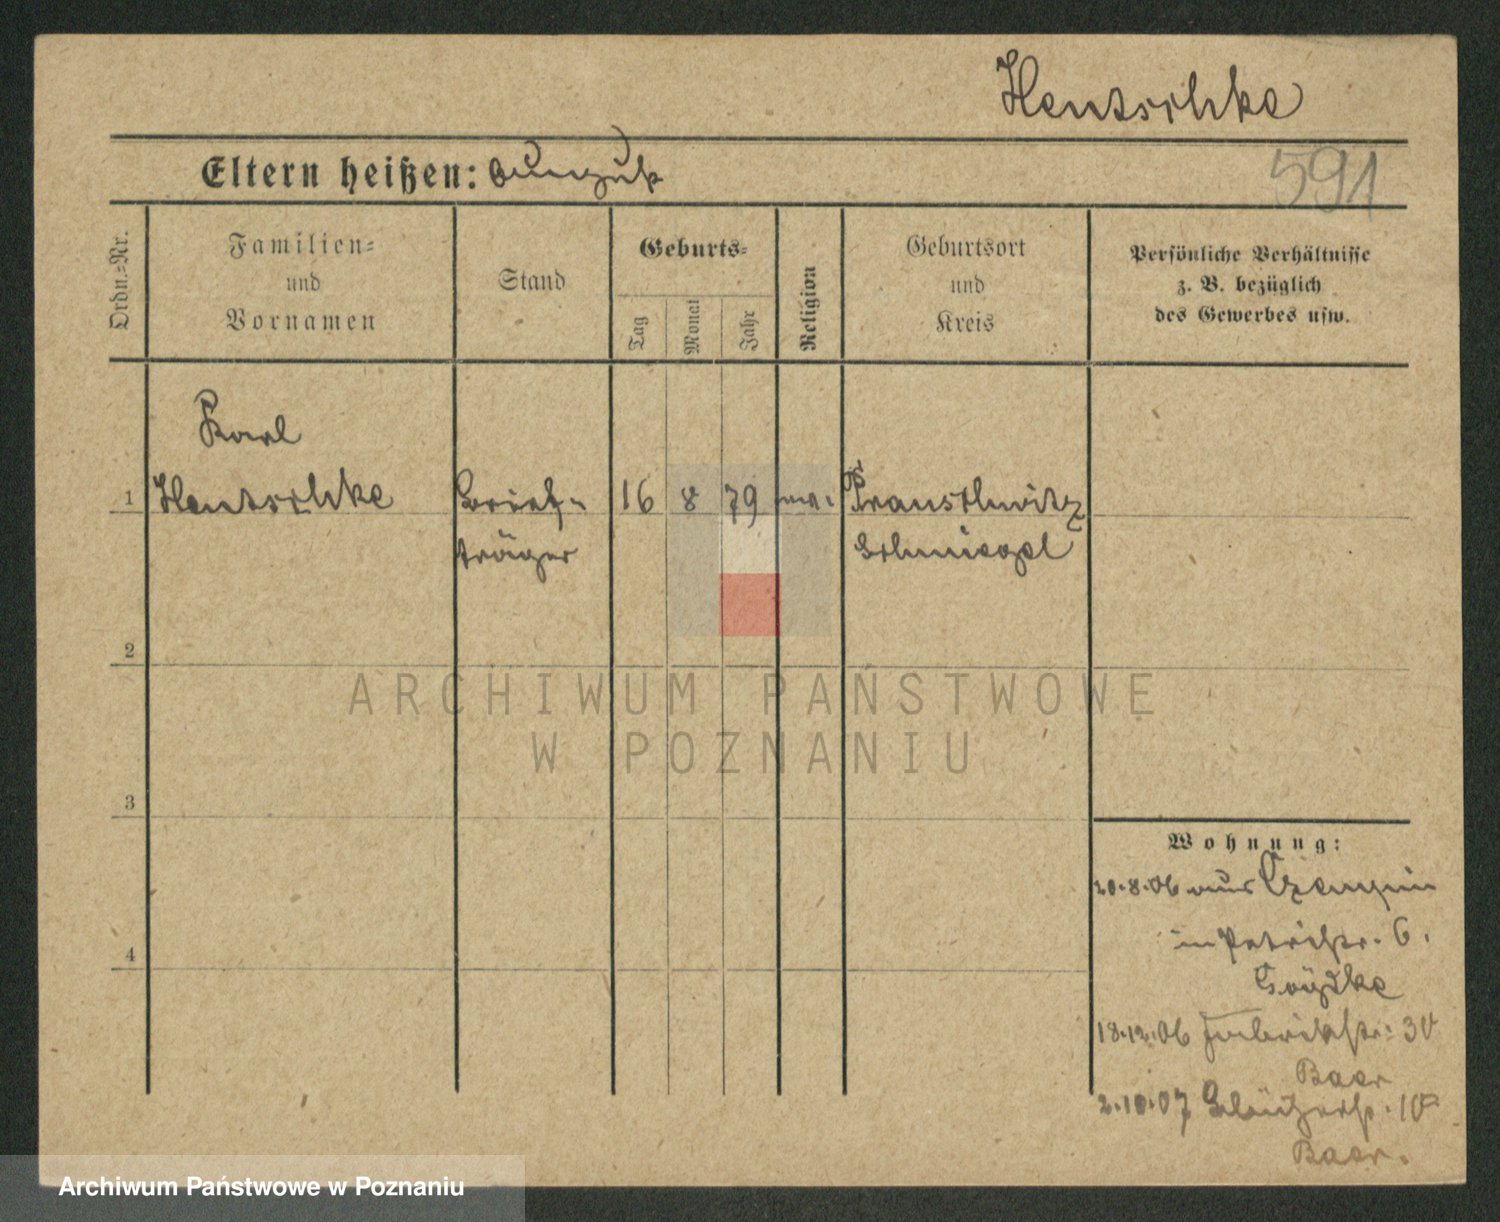 Hentschke
Eltern heißen:
591
Ordn.=Nr.
Familien=
und
Vornamen
Stand
Geburts=
Tag
Monat
Jahr
Religion
Geburtsort
und
Kreis
Persönliche Verhältnisse
z. B. bezüglich
des Gewerbes usw.
Karl
1 Hentschke Brief- 16 8 79 Praustkwitz
träger Schmiegel
2
ARCHIWUM PAŃSTWOWE
W POZNANIU
3
Wohnung:
20.8.06 aus Czempin
in Petristr. 6.
4
18.12.06 Fabrikstr. 30
Baer
2.10.07 10
Baer.
Archiwum Państwowe w Poznaniu